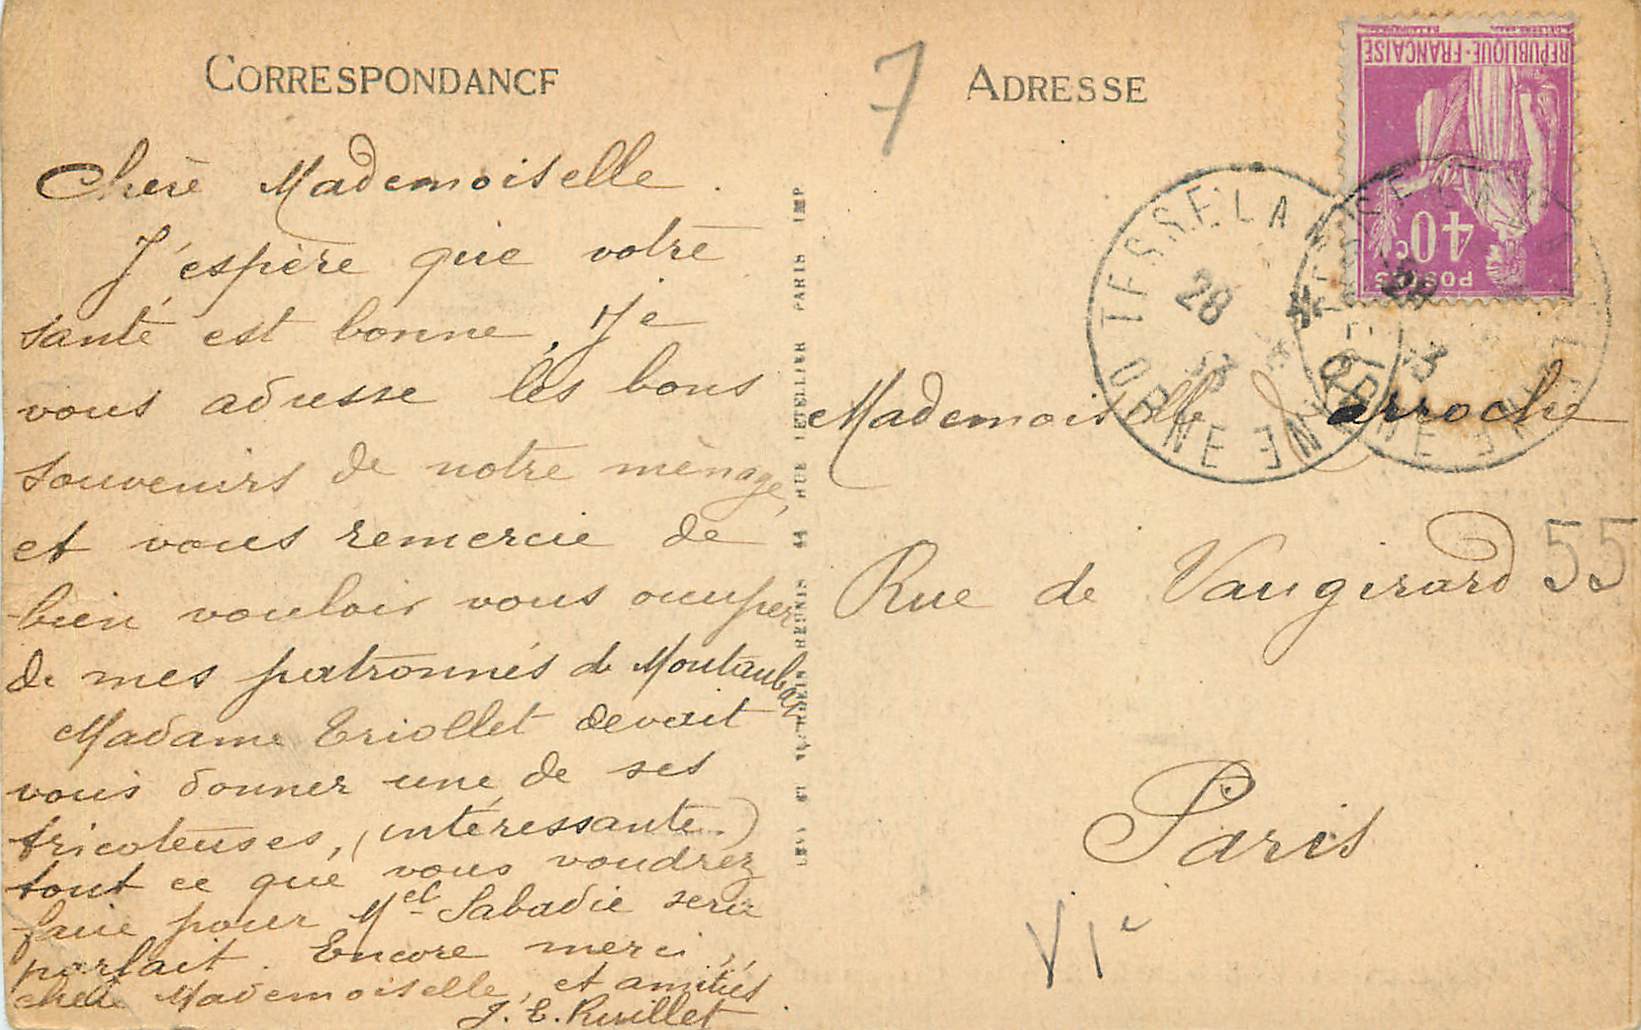 CORRESPONDANCE
Chère Mademoiselle.
J'espère que votre
santé est bonne, Je
vous adresse les bons
souvenirs de notre ménage,
et vous remercie de
bien vouloir vous occuper
de mes patronnes de Montauban
Madame Eriollet devait
vous donner une de ses
tricoteuses, (intéressante.)
tout ce que vous voudrez
faire pour Mel Sabadie sera
parfait. Encore merci,
chère Mademoiselle, et amitiés
J. E. Ruillet
LEVY ET NEURDEIN RÉUNIS 44 RUE LETELLIER PARIS IMP
7
ADRESSE
RÉPUBLIQUE-FRANÇAISE
40c
POSTES
TESSE LA
28
3
ORNE
TESSE LA
28
3
ORNE
Mademoiselle Larroche
Rue de Vaugirard 55
Paris
VIe